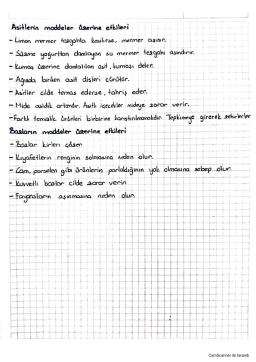 Asitlerin maddeler üzerine etkileri
- Limon mermer tezgahta kesilirse, mermer aşınır.
- Süzme yoğurttan damlayan su mermer tezgahı aşındırır.
- Kumaş üzerine damlatılan asit, kumaşı deler.
- Ağızda biriken asit dişleri çürütür.
- Asitler cilde temas ederse, tahriş eder.
- Mide asidik ortamdır. Asitli içecekler mideye zarar verir.
- Farklı temizlik ürünleri birbirine karıştırılmamalıdır. Tepkimeye girerek zehirlerler
Bazların maddeler üzerine etkileri
- Bazlar kirleri çözer
- Kıyafetlerin renginin solmasına neden olur.
- Cam, porselen gibi ürünlerin parlaklığının yok olmasına sebep olur.
- Kuvvetli bazlar cilde zarar verir.
- Fayansların aşınmasına neden olur.
CamScanner ile tarandı